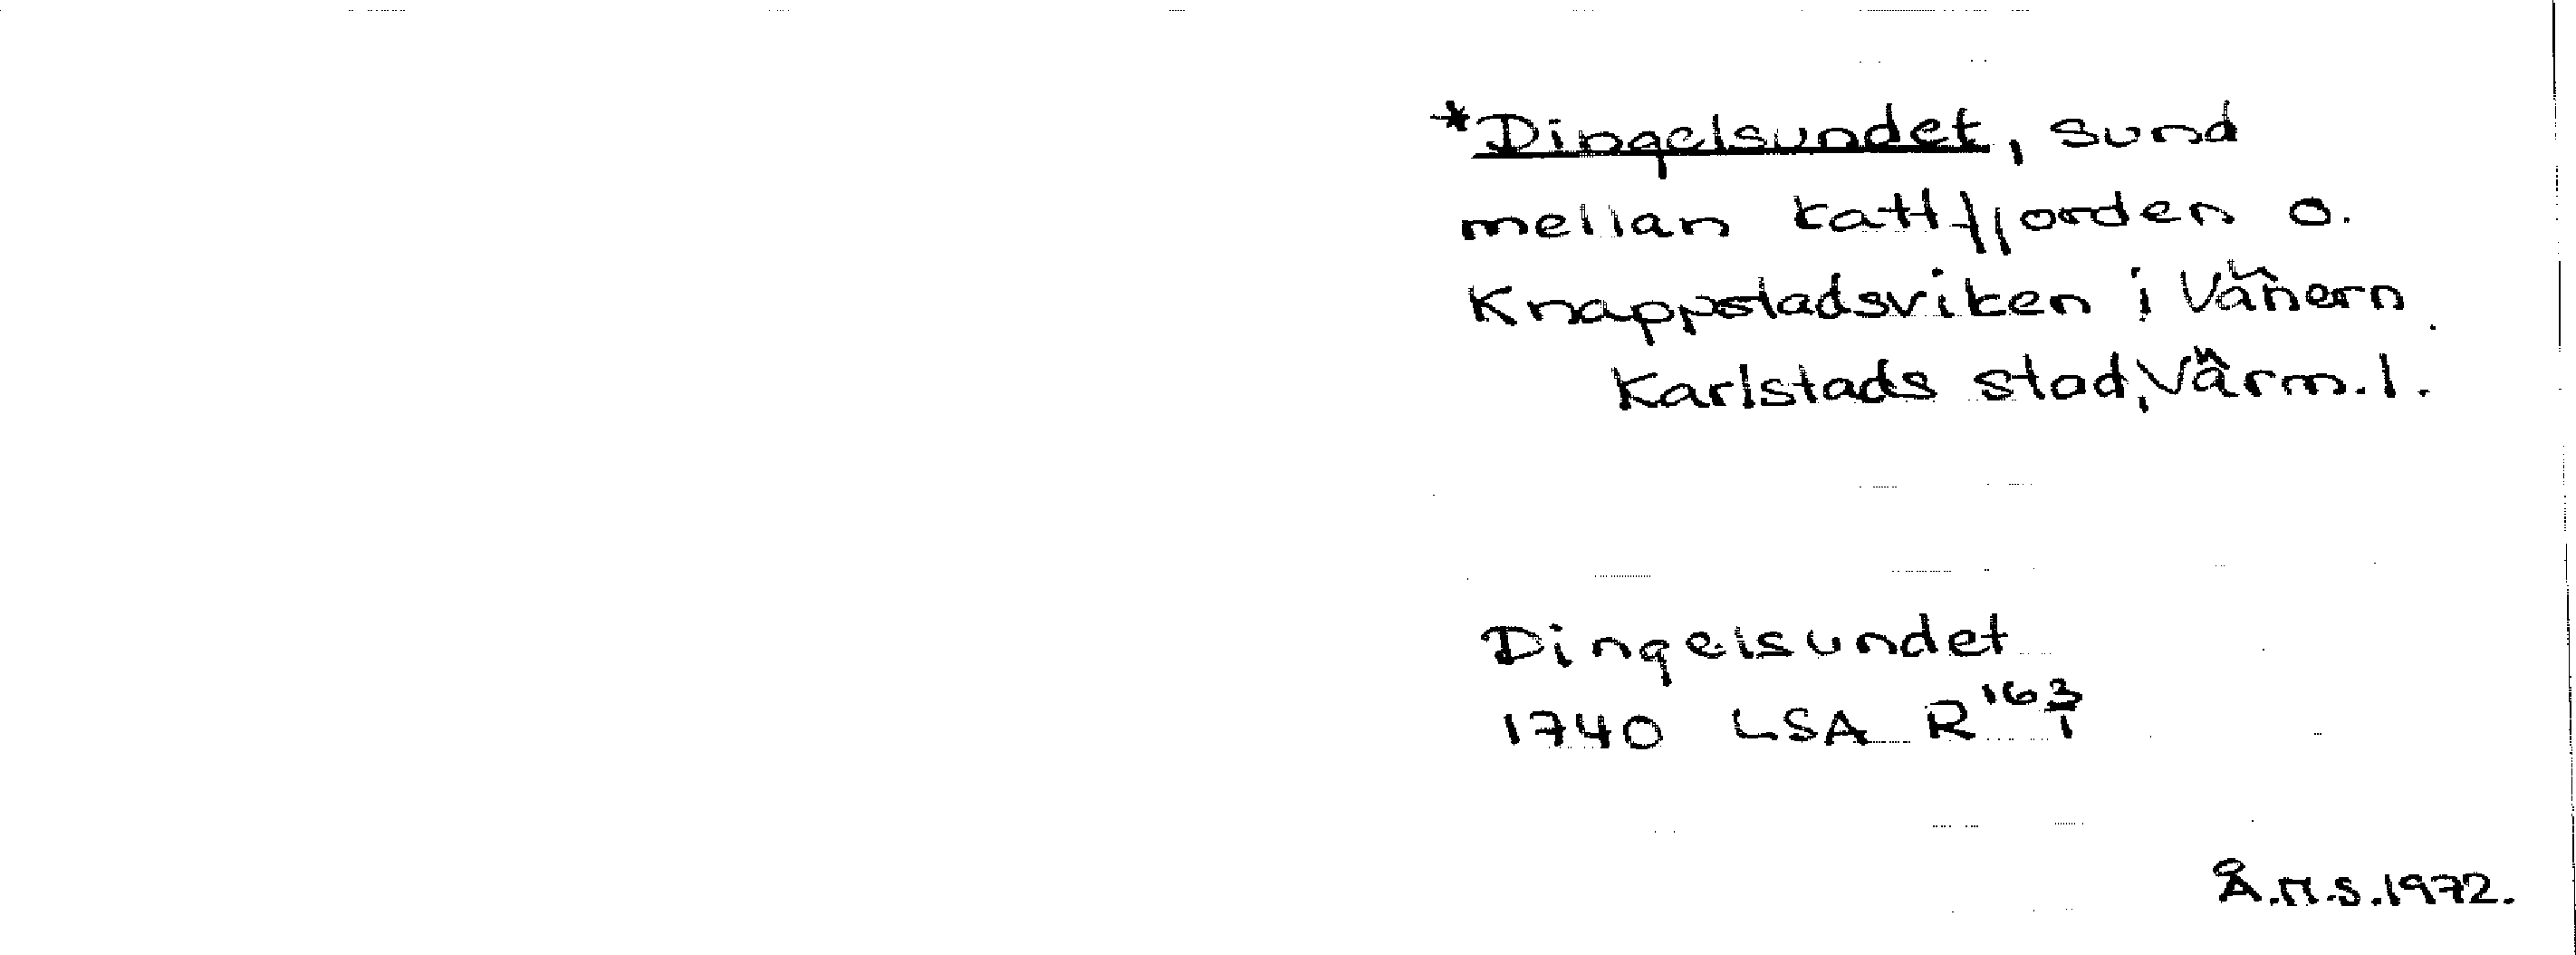 *Dingelsundet, sund
mellan Kattfjorden o.
Knappstadsviken i Vänern
Karlstads stad, Värml.
Dingelsundet
1740 LSA R 163/1
Å.H.S. 1972.